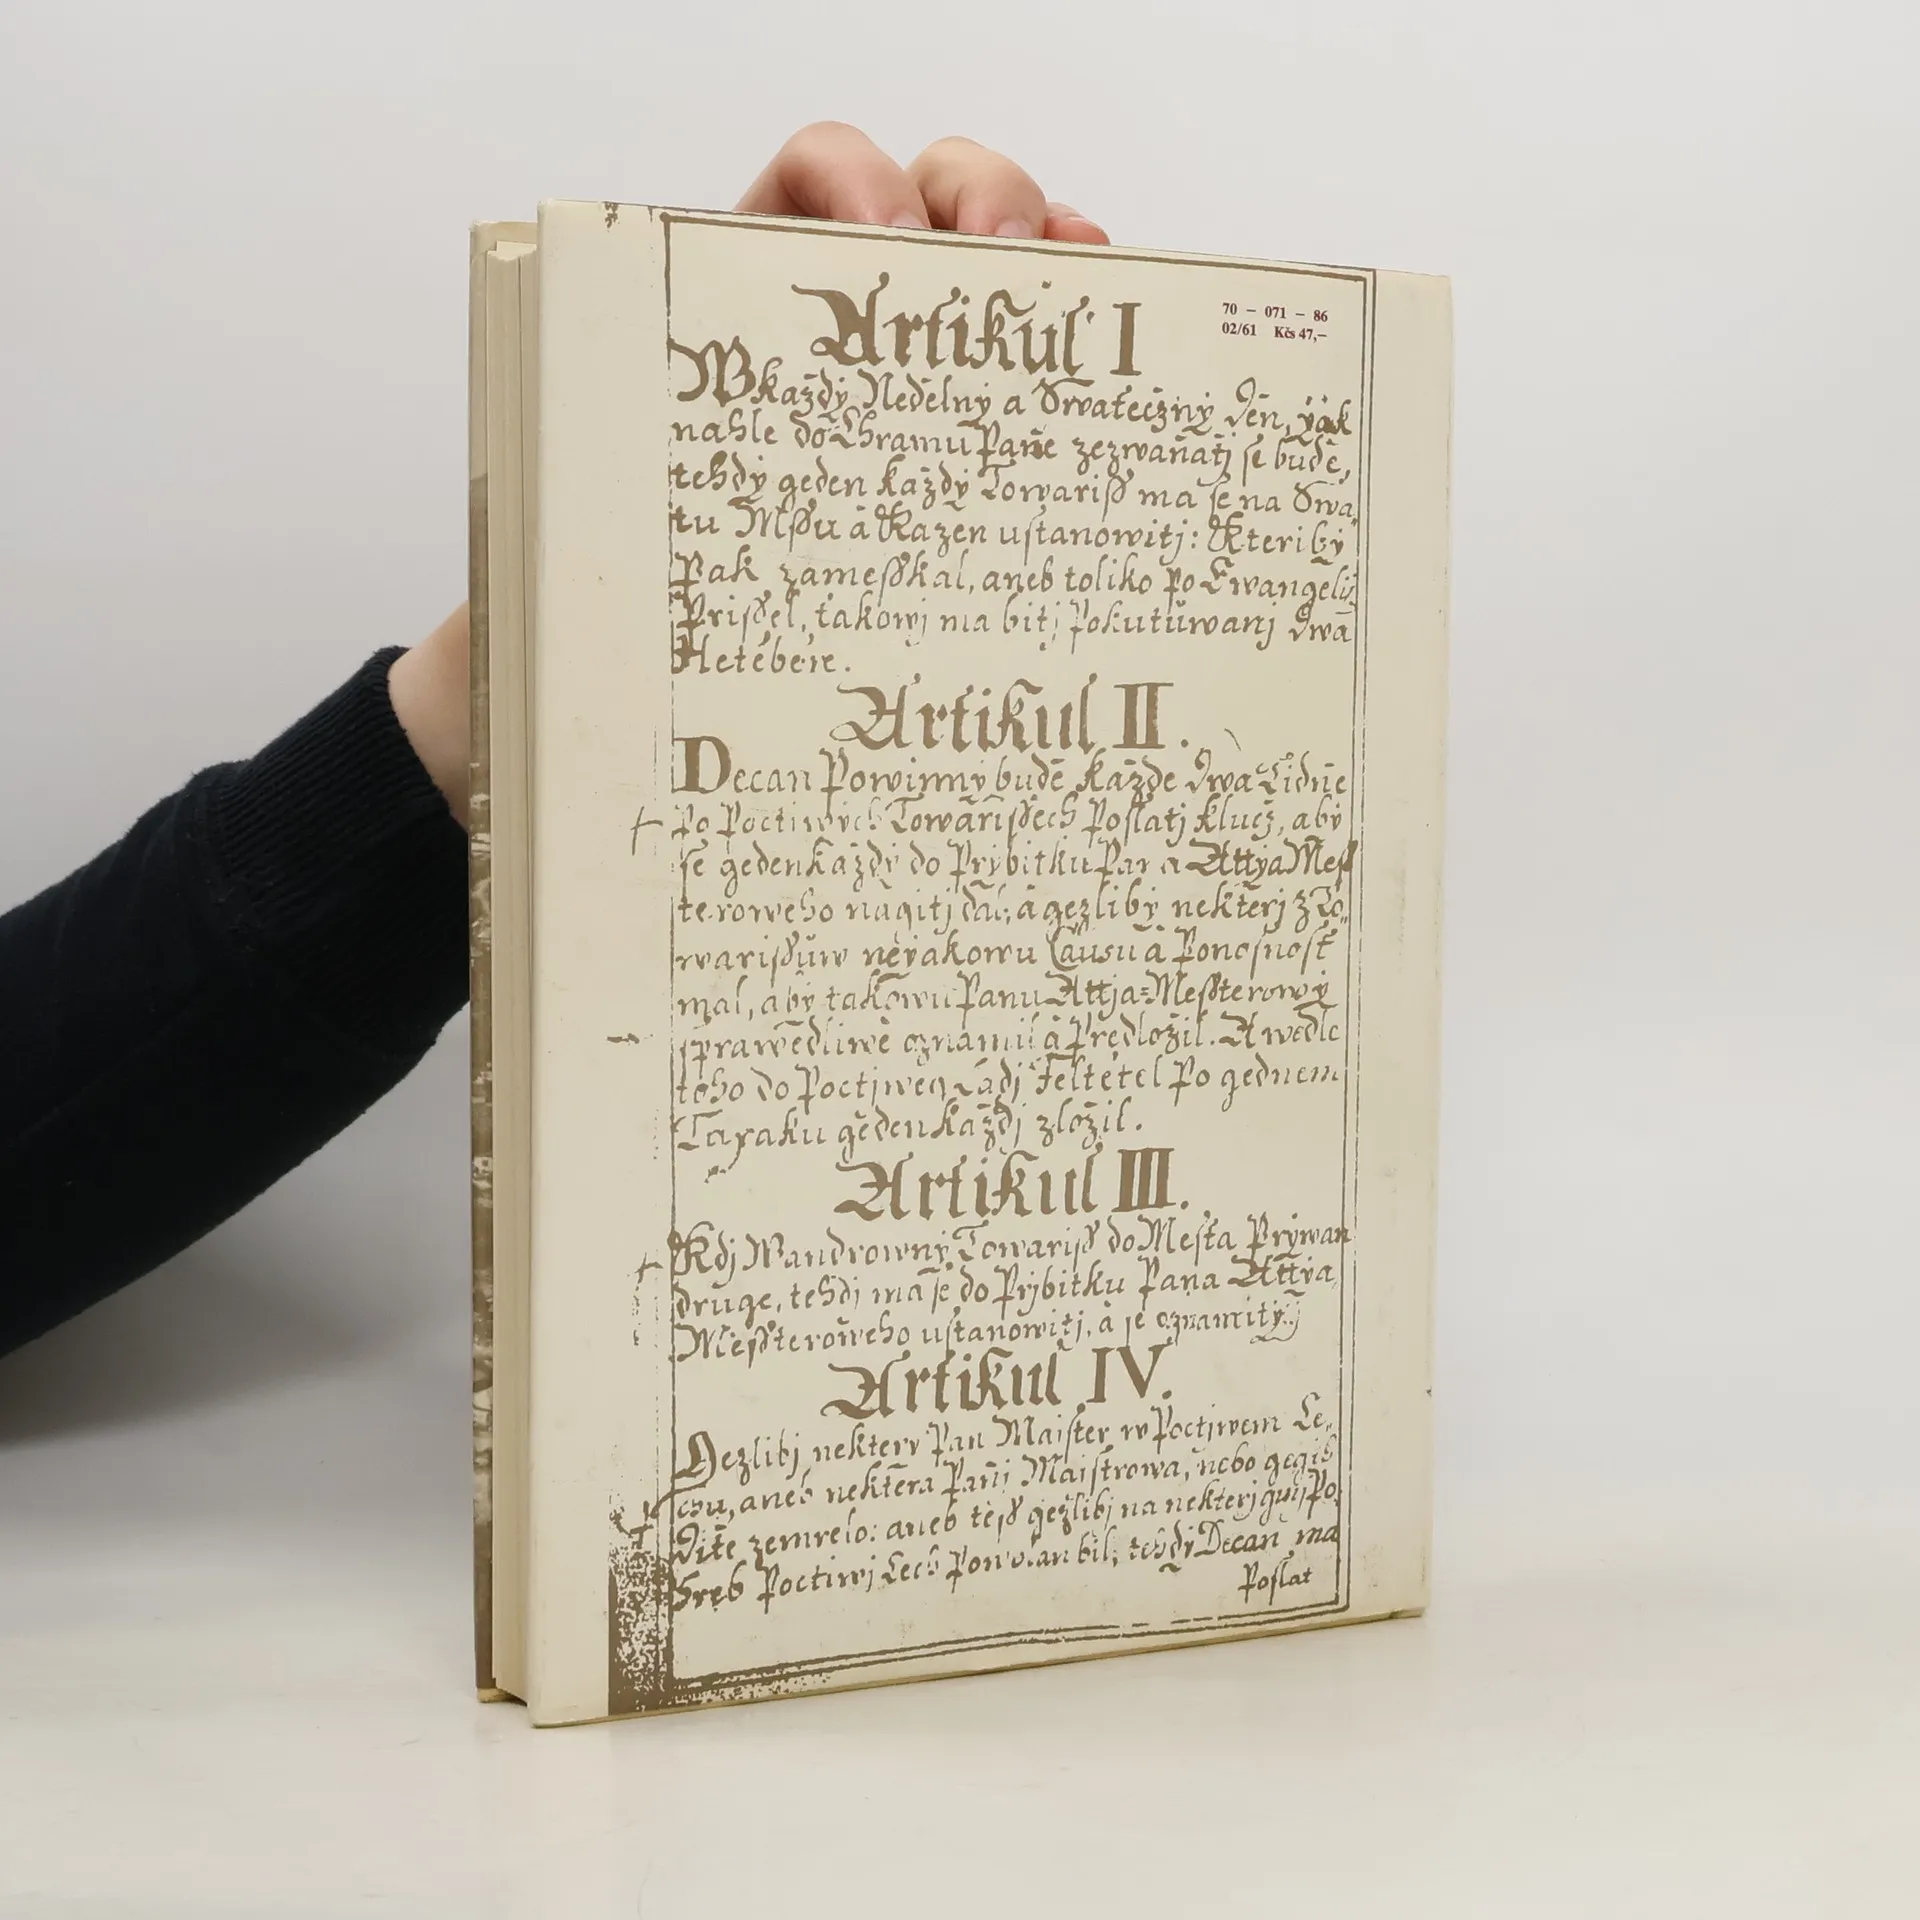 Artikul I
70 – 071 – 86
02/61 Kčs 47,–
W każdý Nedèlný a Swatečzný Dèn, yak
nahle do Chramu Pane zezwanatj se budè,
tehdý geden każdý Towariß ma se na Swa„
tu Mßu à Kazen ustanowitj: Kteribý
Pak zameßkal, aneb toliko po Ewangelij
Prißel, takowj ma bitj Pokutùwanj dwa
Hetèbère.
Artikul II.
Decan Powinný budè każde dwa Tidnè
po Poctiwých Towarißech Poslatj klucż, abý
se geden każdý do Prýbitku Pana Attýa Meß
terowého nagitj dal; à gezlibý nekterj z To„
warißùw neyakowu Causu à Ponosnost
mal, abý takowu Panu Attja=Meßterowý
sprawedliwè oznamil à Predlożil. A wedlè
toho do Poctjweg Ladj Feltètel Po gednem
Tayaku gèden każdj zlożil.
Artikul III.
Kdj Wandrowný Towariß do Mesta Prýwan
druge, tehdj ma se do Prjbitku Pana Attýa
Meßterowèho ustanowitj, à se oznamitý
Artikul IV.
Gezlibj nekterý Pan Maister w Poctjwem Ce„
chu, aneb nektera Panj Maistrowa, nebo gegich
Ditè zemrelo: aneb teß geżlibj na nekterj ginj Po„
hreb Poctiwj Cech Powolan bil; tehdý Decan ma
Poslat